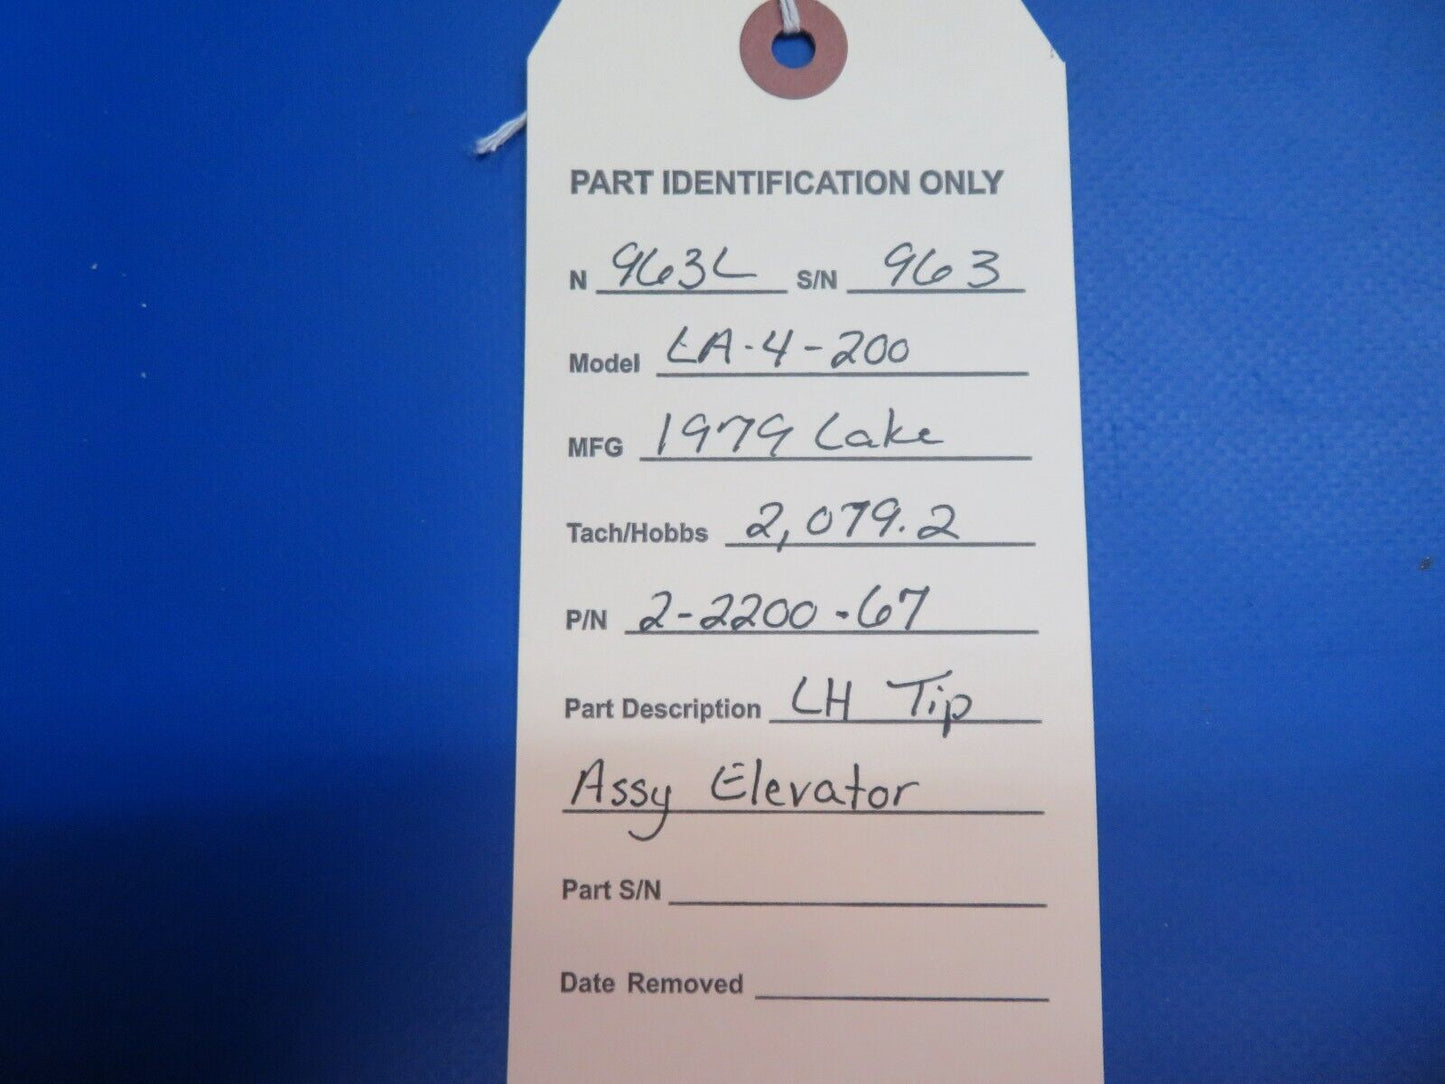 PART IDENTIFICATION ONLY
N 963L S/N 963
Model LA-4-200
MFG 1979 Lake
Tach/Hobbs 2,079.2
P/N 2-2200-67
Part Description LH Tip
Assy Elevator
Part S/N
Date Removed